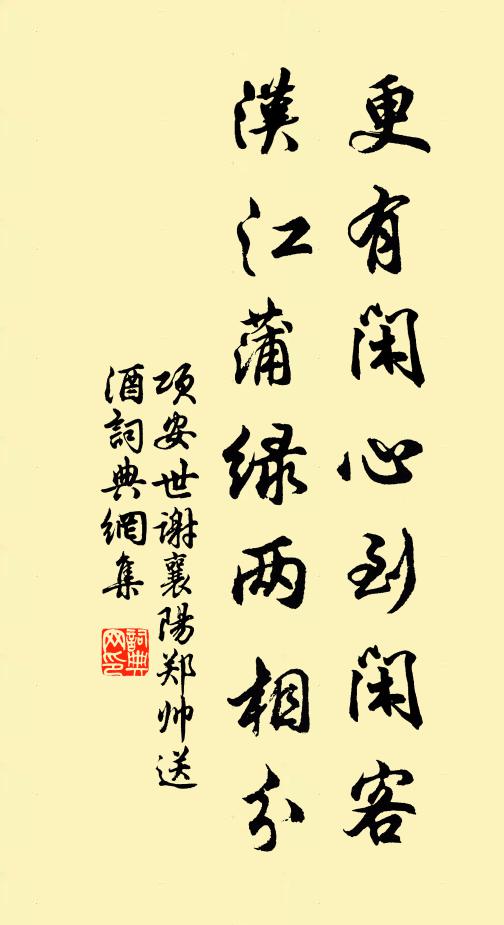 更有闲心到闲客
漢江蒲緑两相分
项安世谢襄陽郑帅送
酒詞典網集
詞典网印